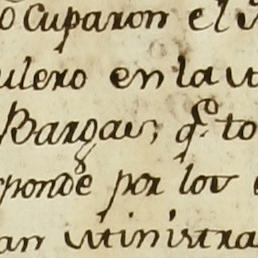 ocuparon el
ulero en la
Bargas, q.e to
sponde por los
an ministra